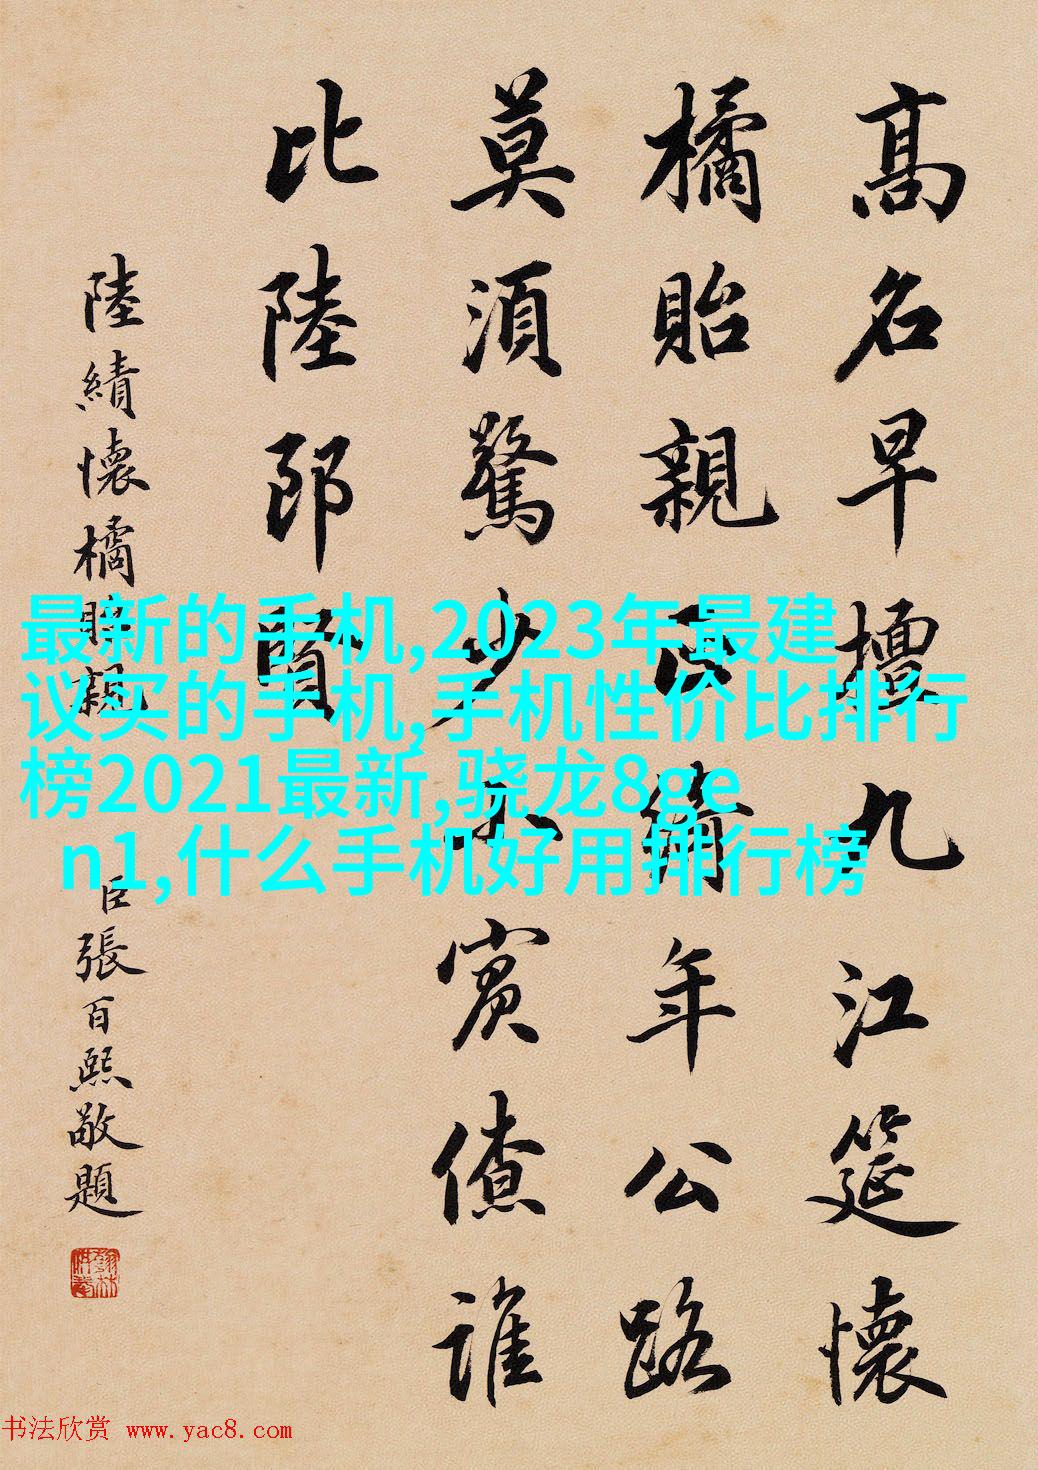 高名早擅九江筵懷
橘貽親年公路
莫須驚少小賓僚誰
比陸郎賢
陸績懷橘貽親
臣張百熙敬題
最新的手机,2023年最建
议买的手机,手机性价比排行
榜2021最新,骁龙8ge
n1,什么手机好用排行榜
书法欣赏 www.yac8.com